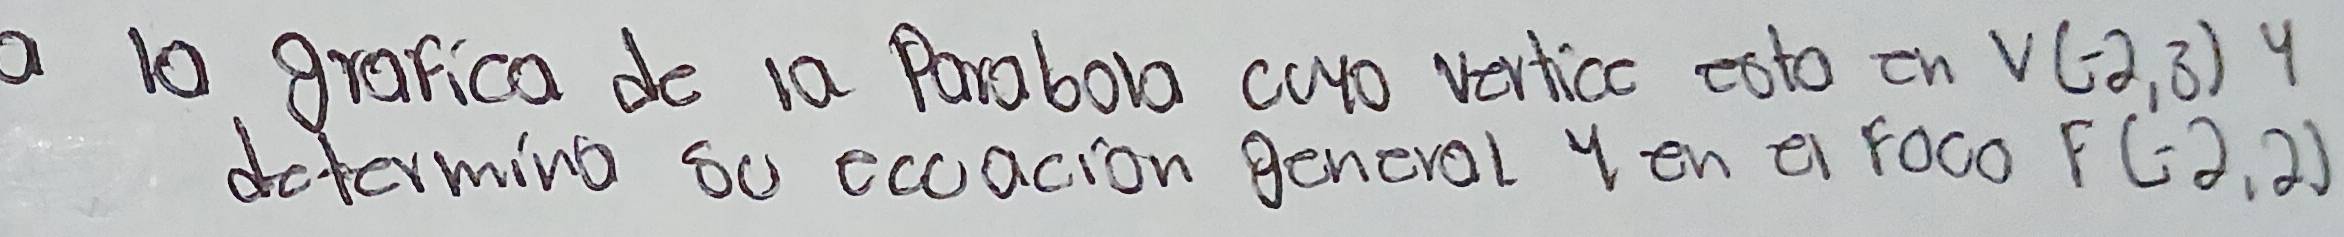 a la grafica de la Parabola cuyo vertice esta en V(-2,3) y
determina su ecuacion general y en el foco F(-2,2)